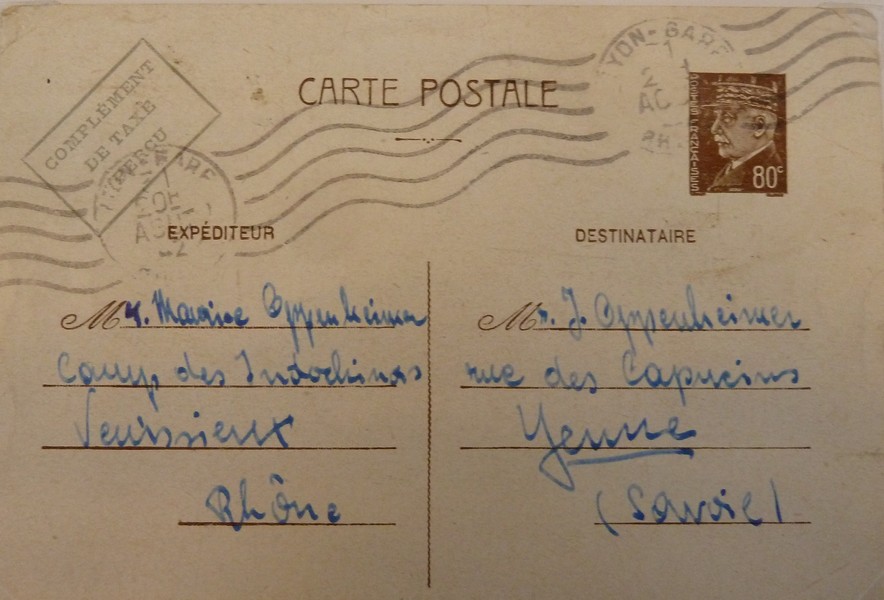 COMPLÉMENT
DE TAXE
PERÇU
CARTE POSTALE
LYON-GARE
POSTES FRANÇAISES
80c
EXPÉDITEUR
Mr. Maurice Oppenheimer
Camp des Indochinois
Venissieux
Rhône
DESTINATAIRE
Mr. J. Oppenheimer
rue des Capucins
Yenne
(Savoie)